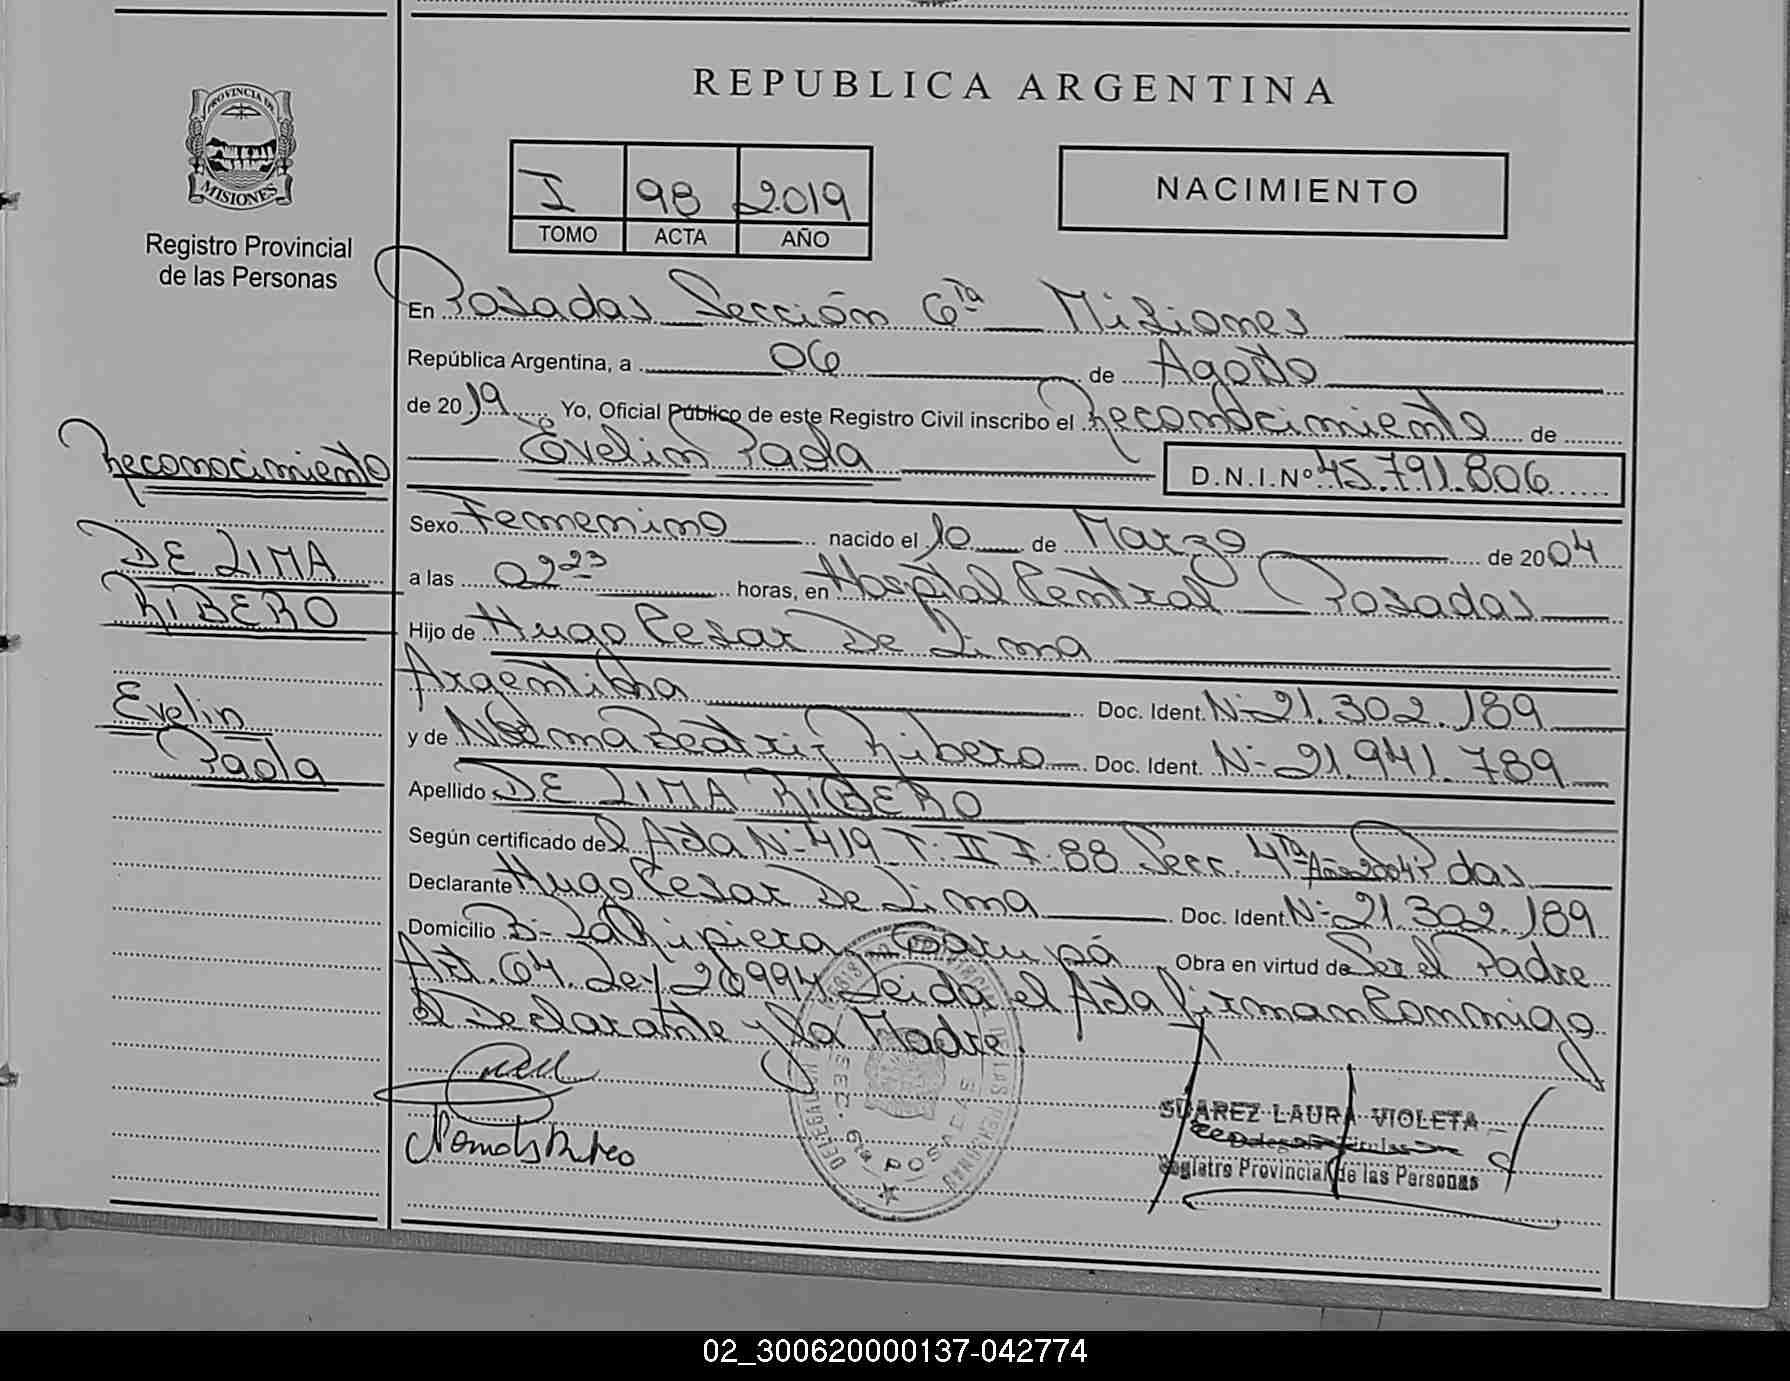 REPUBLICA ARGENTINA
PROVINCIA DE
MISIONES
Registro Provincial
de las Personas
I 98 2019
TOMO ACTA AÑO
NACIMIENTO
En Posadas Sección 6ta Misiones
República Argentina, a 06 de Agosto
de 2019 Yo, Oficial Público de este Registro Civil inscribo el Reconocimiento de
Evelin Paola D.N.I.Nº 45.791.806
Sexo Femenino nacido el 10 de Marzo de 2004
a las 02 23 horas, en Hospital Central Posadas
Hijo de Hugo Cesar De Lima
Argentina Doc. Ident. Nº 21.302.189
y de Norma Beatriz Ribero Doc. Ident. Nº 21.941.789
Apellido DE LIMA RIBERO
Según certificado del Acta Nº 419 T. II F. 88 Secc. 4ta Año 2004 Pdas
Declarante Hugo Cesar De Lima Doc. Ident. Nº 21.302.189
Domicilio Bº Garupá Obra en virtud de Ser el Padre
Art. 64 Ley 26994 Leida el Acta firman Conmigo
el Declarante y la Madre.
Reconocimiento
DE LIMA
RIBERO
Evelin
Paola
SECC. 6ta POSADAS
SUAREZ LAURA VIOLETA
Registro Provincial de las Personas
02_300620000137-042774